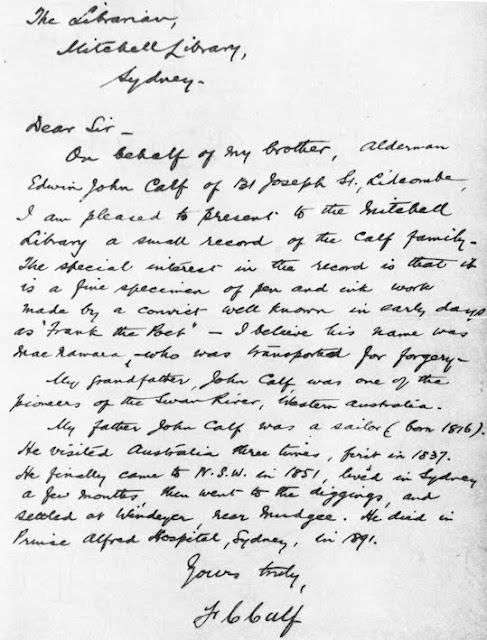 The Librarian,
Mitchell Library,
Sydney.
Dear Sir –
On behalf of my brother, Alderman
Edwin John Calf of 131 Joseph St., Lidcombe,
I am pleased to present to the Mitchell
Library a small record of the Calf family –
The special interest in the record is that it
is a fine specimen of pen and ink work
made by a convict well known in early days
as "Frank the Poet" – I believe his name was
MacNamara, – who was transported for forgery –
My grandfather, John Calf, was one of the
pioneers of the Swan River, Western Australia.
My father John Calf was a sailor (born 1816).
He visited Australia three times, first in 1837.
He finally came to N.S.W. in 1851, lived in Sydney
a few months, then went to the diggings, and
settled at Windeyer, near Mudgee. He died in
Prince Alfred Hospital, Sydney, in 1891.
Yours truly,
F C Calf